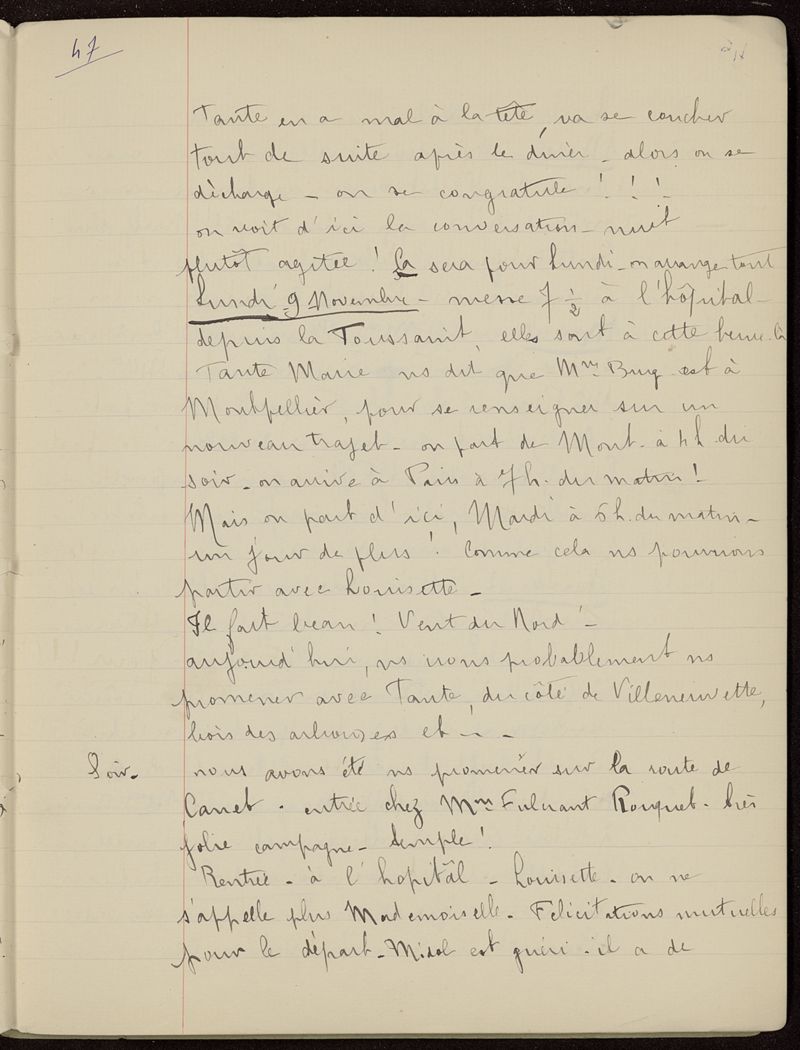 47
Tante en a mal à la tête, va se coucher
tout de suite après le dîner - alors on se
décharge - on se congratule ! ! !
on voit d'ici la conversation - nuit
plutôt agitée ! Ça sera pour Lundi - on arrange tout
Lundi 9 Novembre - messe 7 1/2 à l'hôpital -
depuis la Toussaint, elles sont à cette heure-là
Tante Marie ns dit que Mme est à
Montpellier, pour se renseigner sur un
nouveau trajet - on part de Mont. à 4h. du
soir - on arrive à Paris à 7h. du matin !
Mais on part d'ici, Mardi à 6h. du matin -
un jour de plus ! Comme cela ns pourrions
partir avec Louisette -
Il fait beau ! Vent du Nord ! -
aujourd'hui, ns irons probablement ns
promener avec Tante, du côté de Villeneuvette,
bois des arbouses et - - -
Soir - nous avons été ns promener sur la route de
Canet - entrée chez Mme Fulcrant Rouquet - très
jolie campagne - Simple !
Rentrée - à l'hopitâl - Louisette - on ne
s'appelle plus Mademoiselle - Félicitations mutuelles
pour le départ - est guéri - il a de